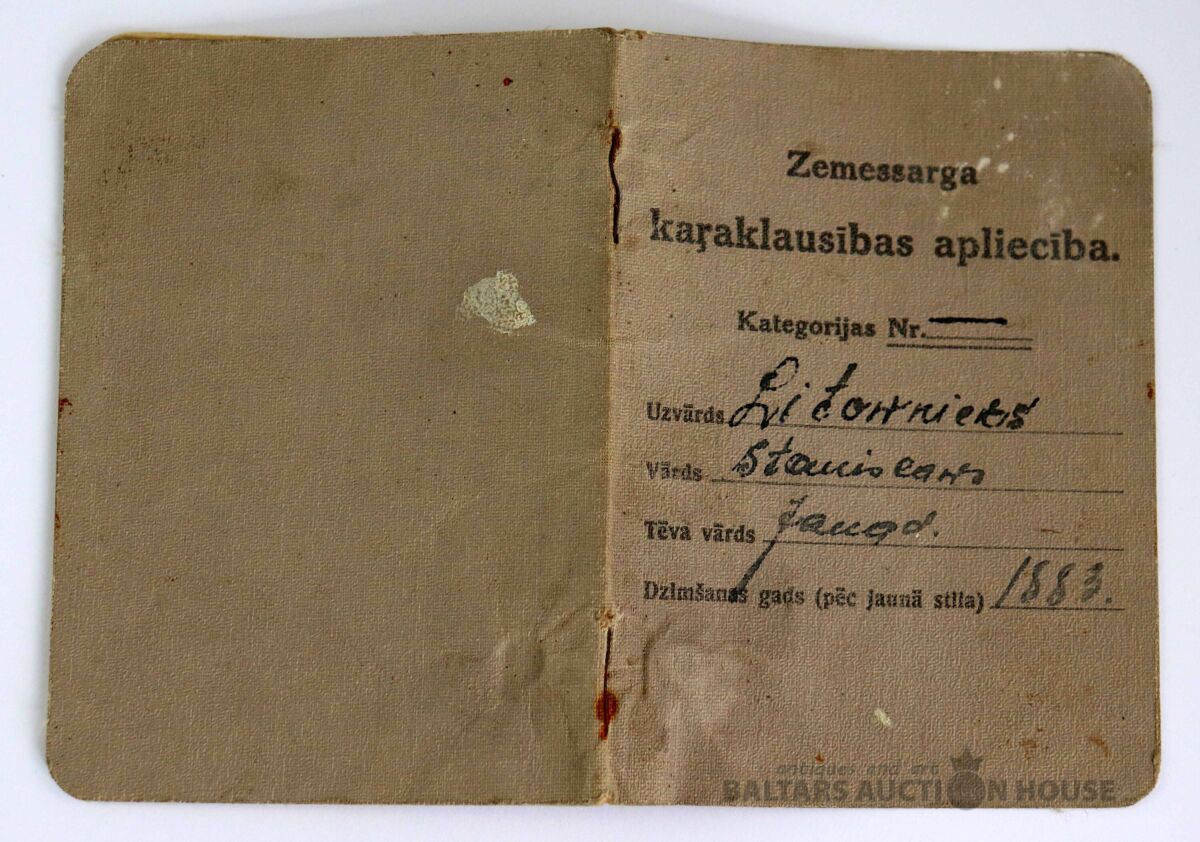 Zemessarga
kaŗaklausības apliecība.
Kategorijas Nr. —
Uzvārds Litownieks
Vārds Stanislaws
Tēva vārds
Dzimšanas gads (pēc jaunā stila) 1883.
antiques and art
BALTARS AUCTION HOUSE